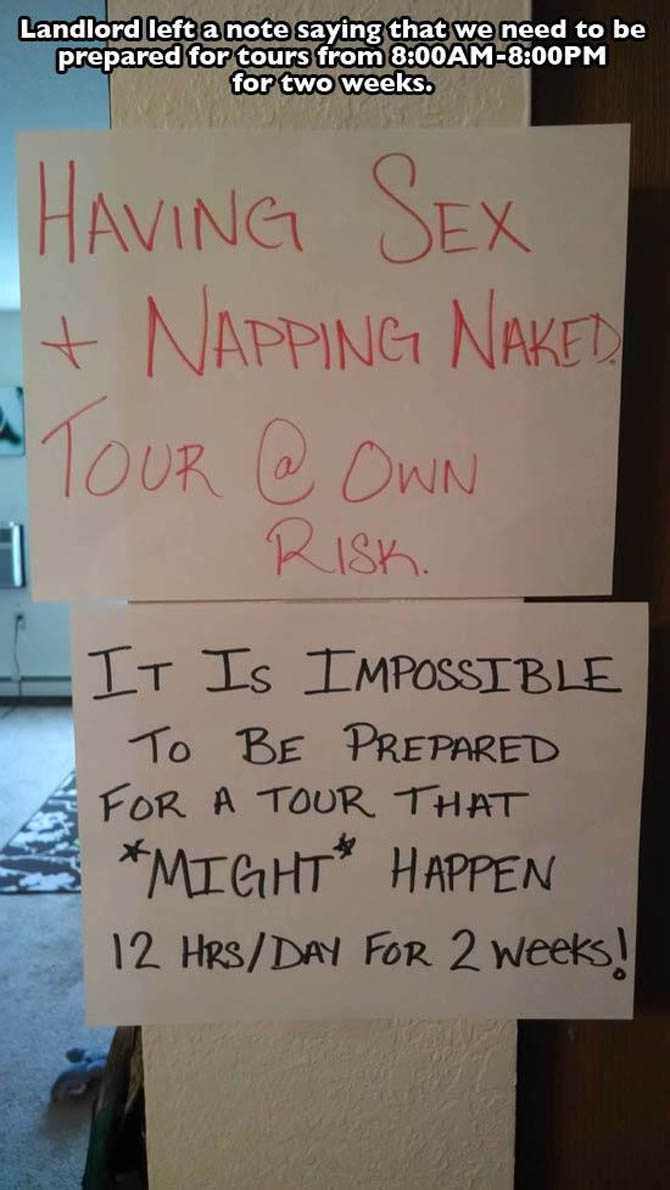 Landlord left a note saying that we need to be
prepared for tours from 8:00AM-8:00PM
for two weeks.
HAVING SEX
+ NAPPING NAKED.
TOUR @ OWN
RISK.
IT IS IMPOSSIBLE
TO BE PREPARED
FOR A TOUR THAT
*MIGHT* HAPPEN
12 HRS/DAY FOR 2 WEEKS!